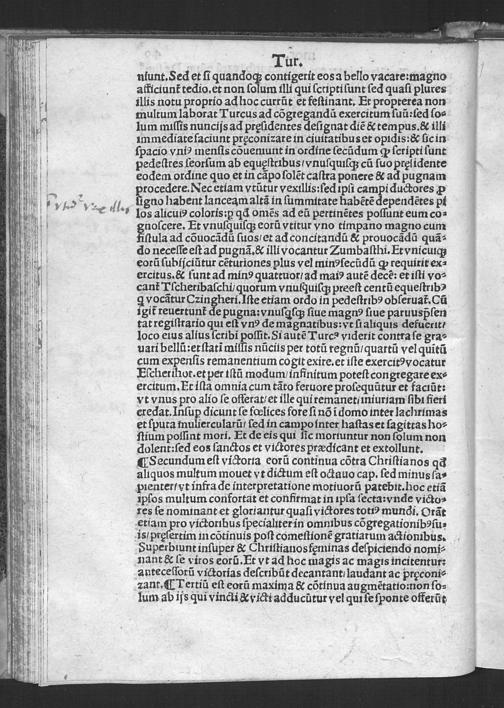 Tur.
niunt. Sed et si quandoqꝫ contigerit eos a bello vacare: magno
afficiunt̃ tedio. et non solum illi qui scripti sunt sed quasi plures
illis motu proprio ad hoc currũt et festinant. Et propterea non
multum laborat Turcus ad cõgregandũ exercitum suũ: sed so-
lum missis nuncijs ad pręsidentes designat diẽ & tempus. & illi
immediate faciunt pręconizare in ciuitatibus et opidis: & sic in
spacio vniꝰ mensis cõueniunt in ordine secũdum ꝙ scripti sunt
pedestres seorsum ab equęstribus/ vnusquisqꝫ cũ suo pręsidente
eodem ordine quo et in cãpo solẽt castra ponere & ad pugnam
procedere. Nec etiam vtũtur vexillis: sed ipsi campi ductores ꝓ
signo habent lanceam altã in summitate habẽtẽ dependẽtes pi
los alicuiꝰ coloris: ꝑ qd̃ omẽs ad eũ pertinẽtes possunt eum co-
gnoscere. Et vnusquisqꝫ eorũ vtitur vno timpano magno cum
fistula ad cõuocãdũ suos/ et ad concitandũ & prouocãdũ quã-
do necesse est ad pugnã. & illi vocantur Zumbasthi. Et vnicuiqꝫ
eorũ subijciũtur cẽturiones plus vel minꝰ secũdũ ꝙ requirit ex-
ercitus. & sunt ad minꝰ quattuor/ ad maiꝰ autẽ decẽ: et isti vo-
cant̃ Tscheribaschi/ quorum vnusquisqꝫ preest centũ equestribꝰ
q̃ vocãtur Czingheri. Iste etiam ordo in pedestribꝰ obseruat̃. Cũ
igit̃ reuertunt̃ de pugna: vnusq̃sqꝫ siue magnꝰ siue paruus presen
tat registrario qui est vnꝰ de magnatibus: vt si aliquis defuerit/
loco eius alius scribi possit. Si autẽ Turcꝰ viderit contra se gra-
uari bellũ: et statĩ missis nũciis per totũ regnũ/ quartũ vel quĩtũ
cum expensis remanentium cogit exire. et iste exercitꝰ vocatur
Escherihor. et per istũ modum/ infinitum potest congregare ex-
ercitum. Et ista omnia cum tãto feruore prosequũtur et faciũt:
vt vnus pro alio se offerat/ et ille qui remanet/ iniuriam sibi fieri
credat. Insuꝑ dicunt se fœlices fore si nõ ĩ domo inter lachrimas
et sputa muliercularũ/ sed in campo inter hastas et sagittas ho-
stium possint mori. Et de eis qui sic moriuntur non solum non
dolent: sed eos sanctos et victores prædicant et extollunt.
¶ Secundum est victoria eorũ continua cõtra Christianos qd̃
aliquos multum mouet vt dictum est octauo cap. sed minus sa-
pienter/ vt infra de interpretatione motiuorũ patebit. hoc etiã
ipsos multum confortat et confirmat in ipsa secta: vnde victo-
res se nominant et gloriantur quasi victores totiꝰ mundi. Orãt
etiam pro victoribus specialiter in omnibus cõgregationibꝰ su-
is/ pręsertim in cõtinuis post comestionẽ gratiarum actionibus.
Superbiunt insuper & Christianos fęminas despiciendo nomi-
nant & se viros eorũ. Et vt ad hoc magis ac magis incitentur:
antecessorũ victorias describũt decantant/ laudant ac pręconi-
zant. ¶ Tertiũ est eorũ maxima & cõtinua augmẽtatio: non so-
lum ab ijs qui vincti & victi adducũtur vel qui se sponte offerũt